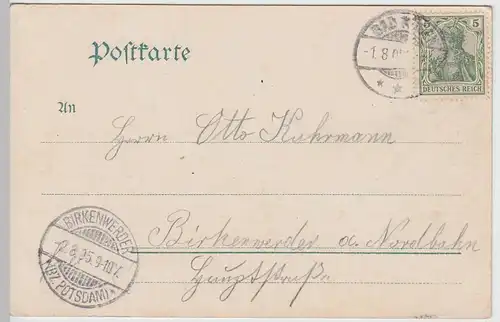 Postkarte
BAD
-1.8.0
5
DEUTSCHES REICH
An
Herrn Otto Kuhrmann
BIRKENWERDER
12.8.05.9-10V.
(BZ. POTSDAM)
Birkenwerder a. Nordbahn
Hauptstraße